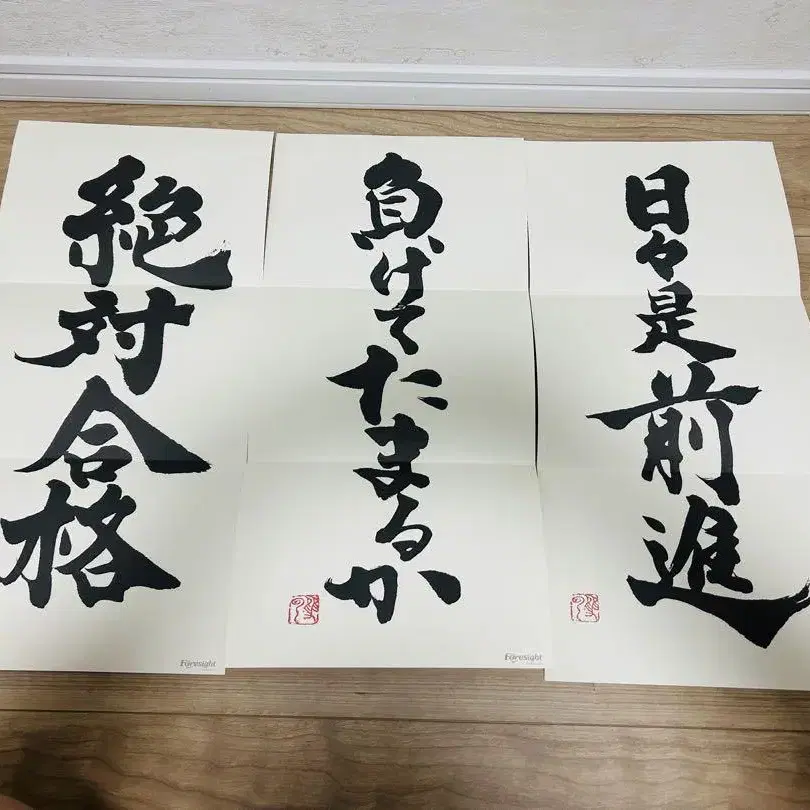 日々是前進
負けてたまるか
絶対合格
Foresight
Foresight